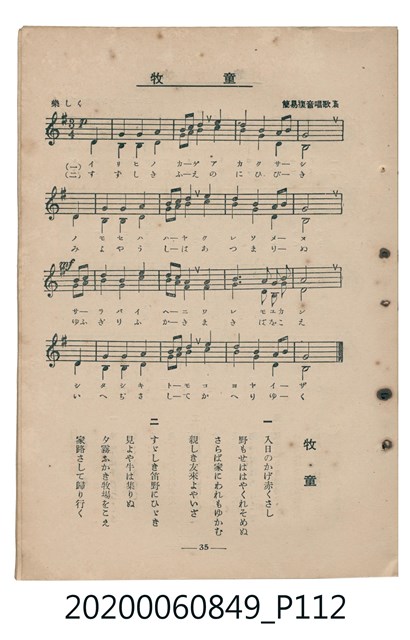 牧童
楽しく
簡易複音唱歌集
p
(一) イリヒノ カーゲアカクサーシ
(二) すずしき ふーえのにひびーき
ノモセハ ハーヤクレソメーヌ
みよやう しーはあつまりーぬ
mf
サーラバイ ヘーニワレ モユカン
ゆふぎりふ かーきまき ばをこえ
シタシキ トーモコヨヤイーザ
いへぢさ しーてかへりゆーく
牧童
一
入日のかげ赤くさし
野もせははやくれそめぬ
さらば家にわれもゆかむ
親しき友来よやいざ
二
すゞしき笛野にひゞき
見よや牛は集りぬ
夕霧ふかき牧場をこえ
家路さして歸り行く
— 35 —
20200060849_P112